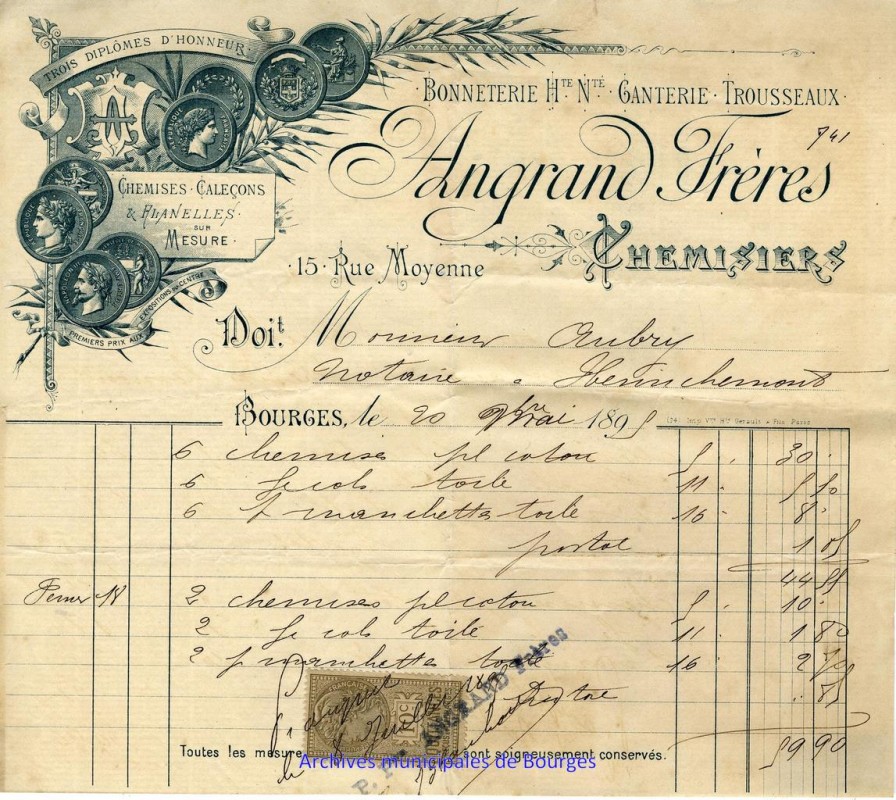 TROIS DIPLÔMES D'HONNEUR
BONNETERIE HTE NTÉ · GANTERIE · TROUSSEAUX ·
741
Angrand Frères
CHEMISES · CALEÇONS
& FLANELLES
SUR
MESURE ·
CHEMISIERS
· 15 · RUE MOYENNE
PREMIERS PRIX AUX EXPOSITIONS DU CENTRE
Doit Monsieur Aubry
Notaire a Henrichemont
BOURGES, le 20 1895
6 chemises pl coton 5 . 30 .
6 toile 11 . 5 50
6 manchettes toile 16 . 8 .
postal 1 05
44 55
18 2 chemises pl coton 5 . 10 .
2 cols toile 11 . 1 80
2 manchettes toile 16 2
85
59 90
P. P. ANGRAND Frères
10 c
Toutes les mesure sont soigneusement conservés.
Archives municipales de Bourges